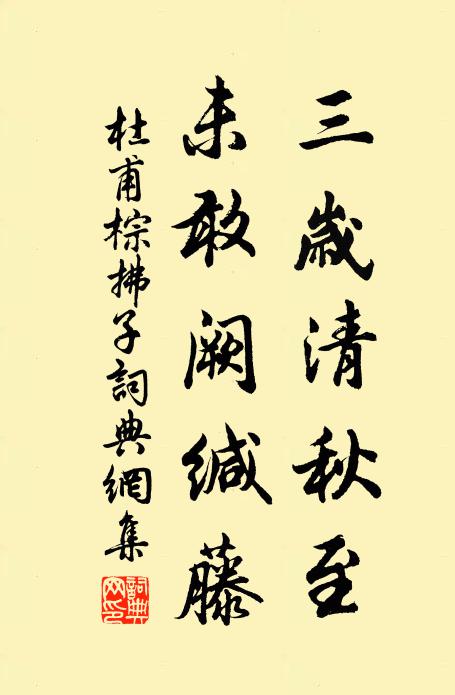 三歲清秋至
未敢闕緘藤
杜甫棕拂子詞典網集
詞典網印